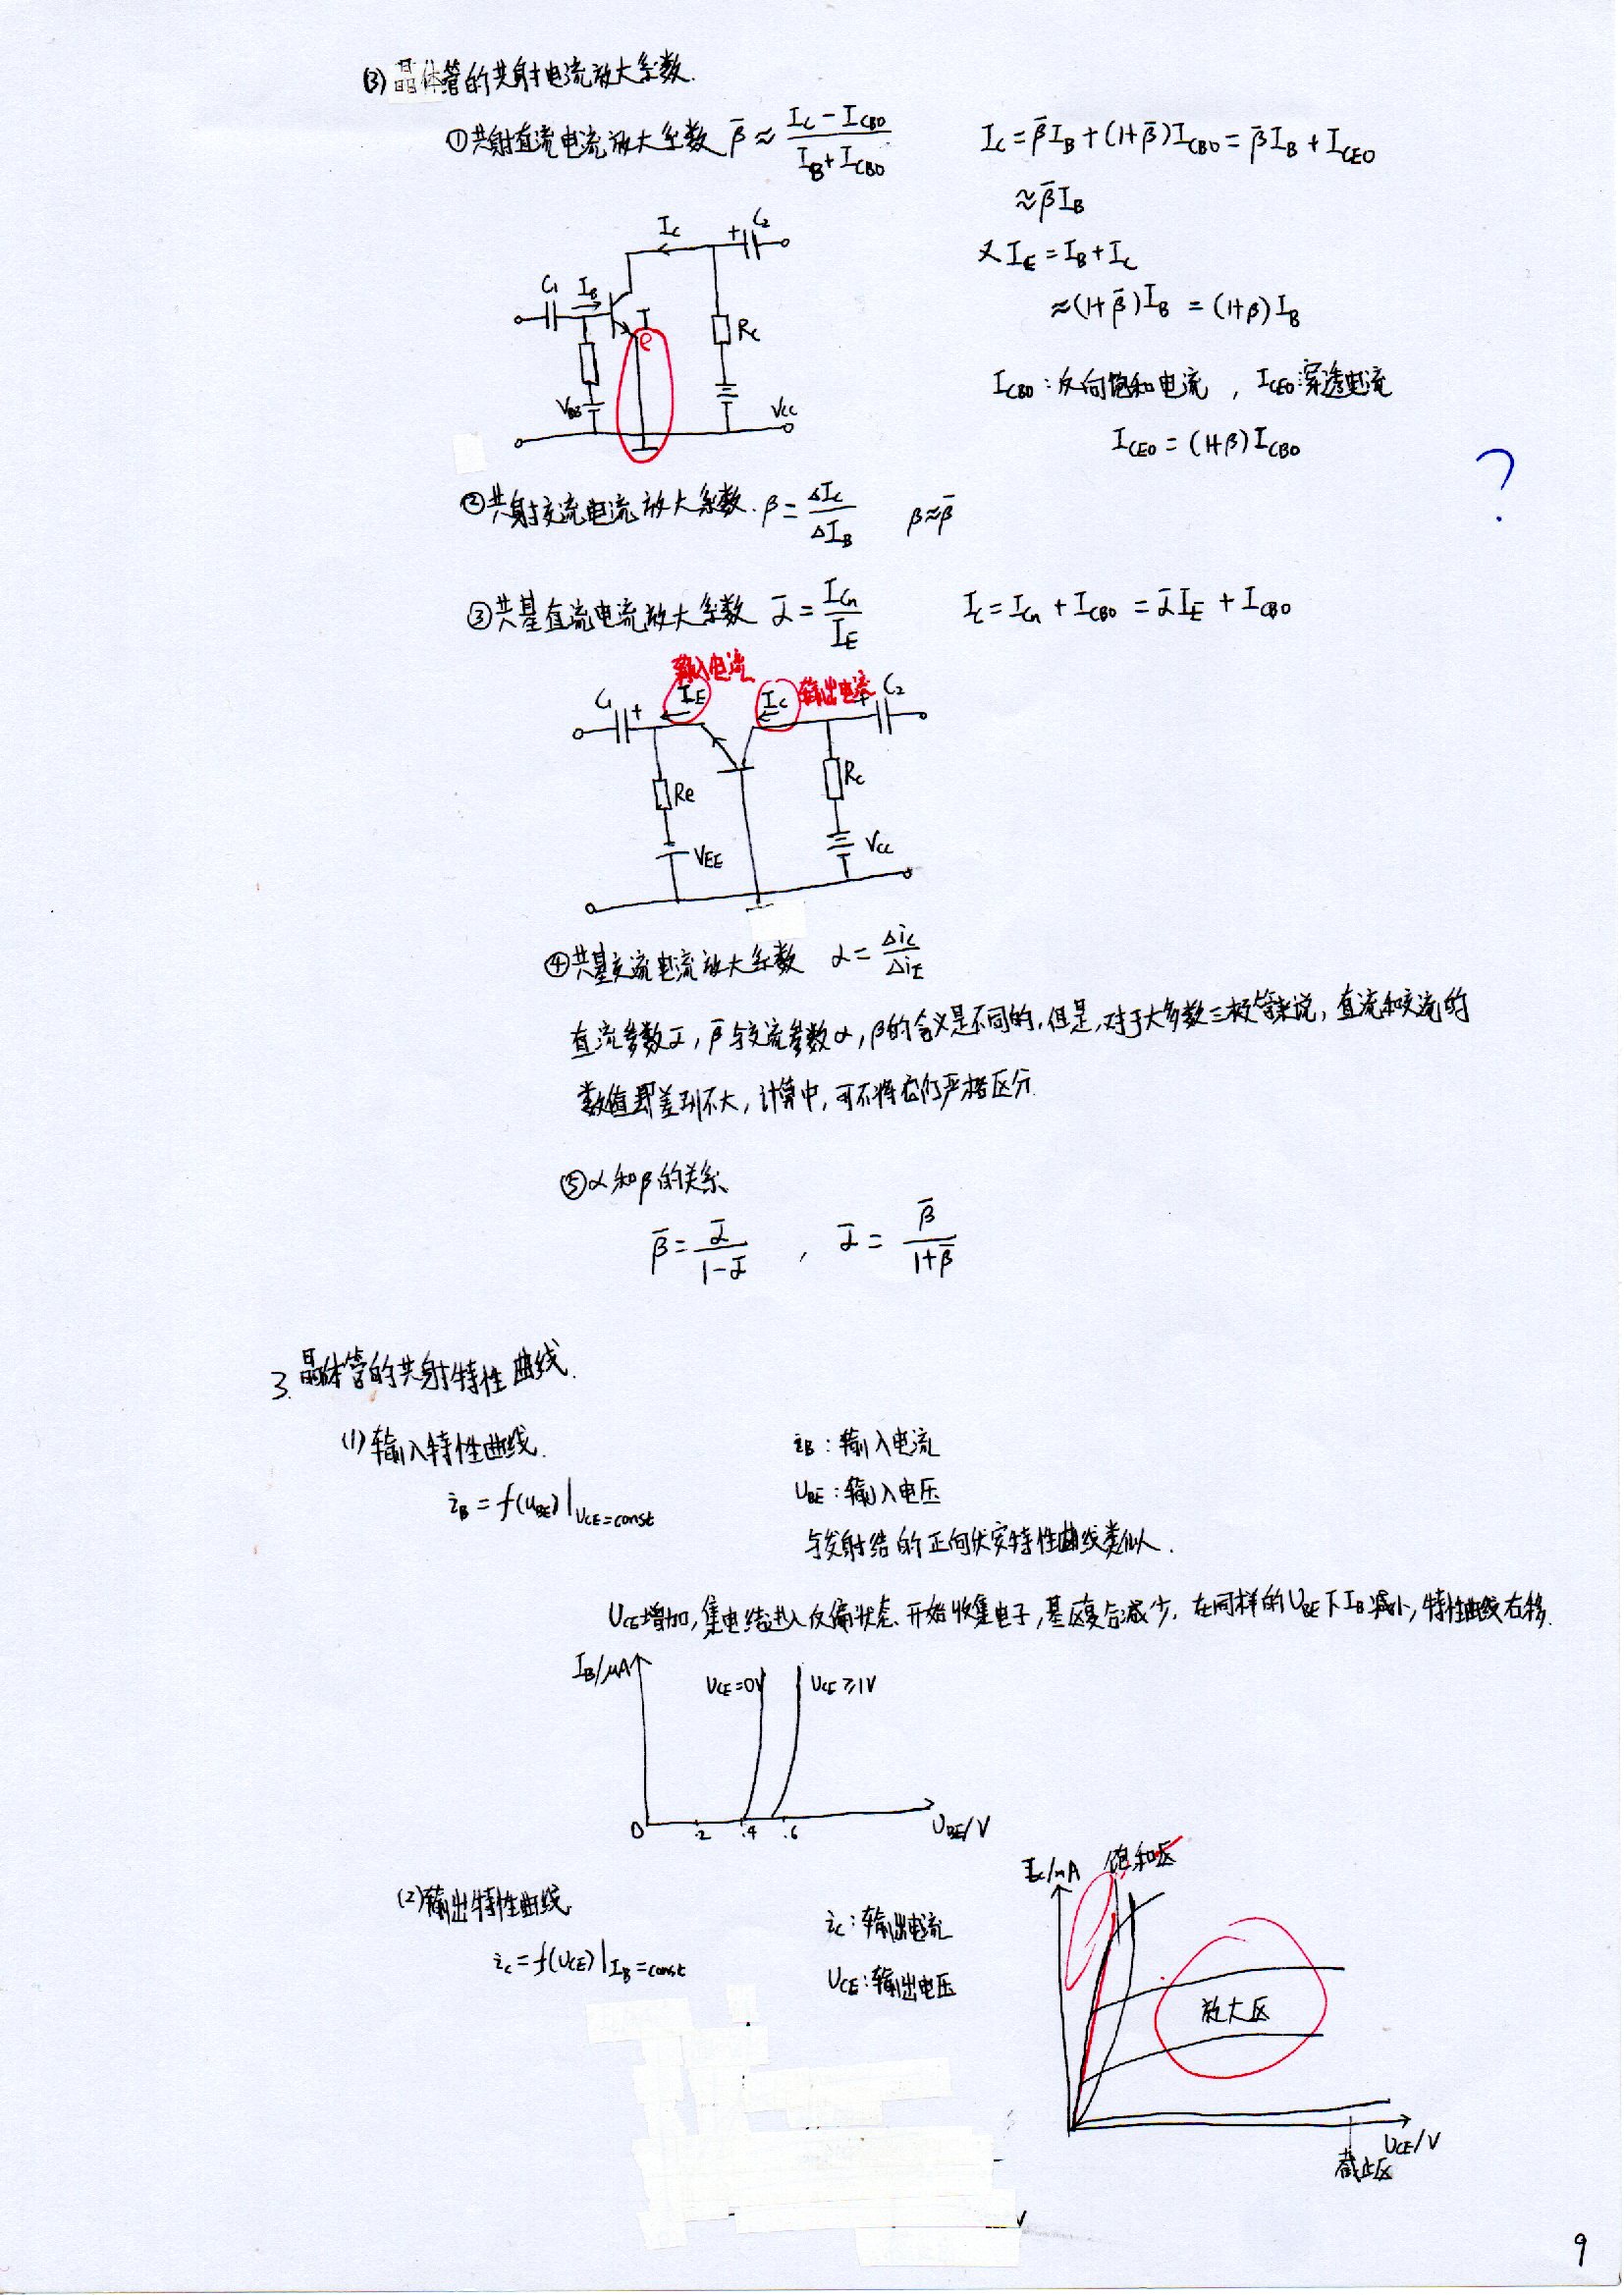 (3) 晶体管的共射电流放大系数.
①共射直流电流放大系数 β̄ ≈ (I_C - I_CBO)/(I_B + I_CBO)
I_C = β̄I_B + (1+β̄)I_CBO = β̄I_B + I_CEO
≈ β̄I_B
又 I_E = I_B + I_C
≈ (1+β̄)I_B = (1+β)I_B
I_CBO：反向饱和电流，I_CEO 穿透电流
I_CEO = (1+β)I_CBO
?
I_C
+ C₂
C₁
I_B
T
e
R_C
V_BB
V_CC
②共射交流电流放大系数. β = ΔI_C/ΔI_B β≈β̄
③共基直流电流放大系数 ᾱ = I_Cn/I_E
I_C = I_Cn + I_CBO = ᾱI_E + I_CBO
输入电流
输出电流
C₁ +
I_E
I_C
+ C₂
Re
R_C
V_EE
V_CC
④共基交流电流放大系数 α = Δi_C/Δi_E
直流参数ᾱ, β̄与交流参数α, β的含义是不同的, 但是, 对于大多数三极管来说, 直流和交流的
数值却差别不大, 计算中, 可不将它们严格区分.
⑤α和β的关系
β̄ = ᾱ/(1-ᾱ) , ᾱ = β̄/(1+β̄)
3. 晶体管的共射特性曲线.
(1) 输入特性曲线.
i_B = f(u_BE)|U_CE=const
i_B：输入电流
U_BE：输入电压
与发射结的正向伏安特性曲线类似.
U_CE增加, 集电结进入反偏状态, 开始收集电子, 基区复合减少, 在同样的U_BE下I_B减小, 特性曲线右移.
I_B/μA
U_CE=0V
U_CE≥1V
0 .2 .4 .6
U_BE/V
(2) 输出特性曲线.
i_C = f(U_CE)|I_B=const
i_C：输出电流
U_CE：输出电压
I_C/mA
饱和区
放大区
U_CE/V
截止区
9